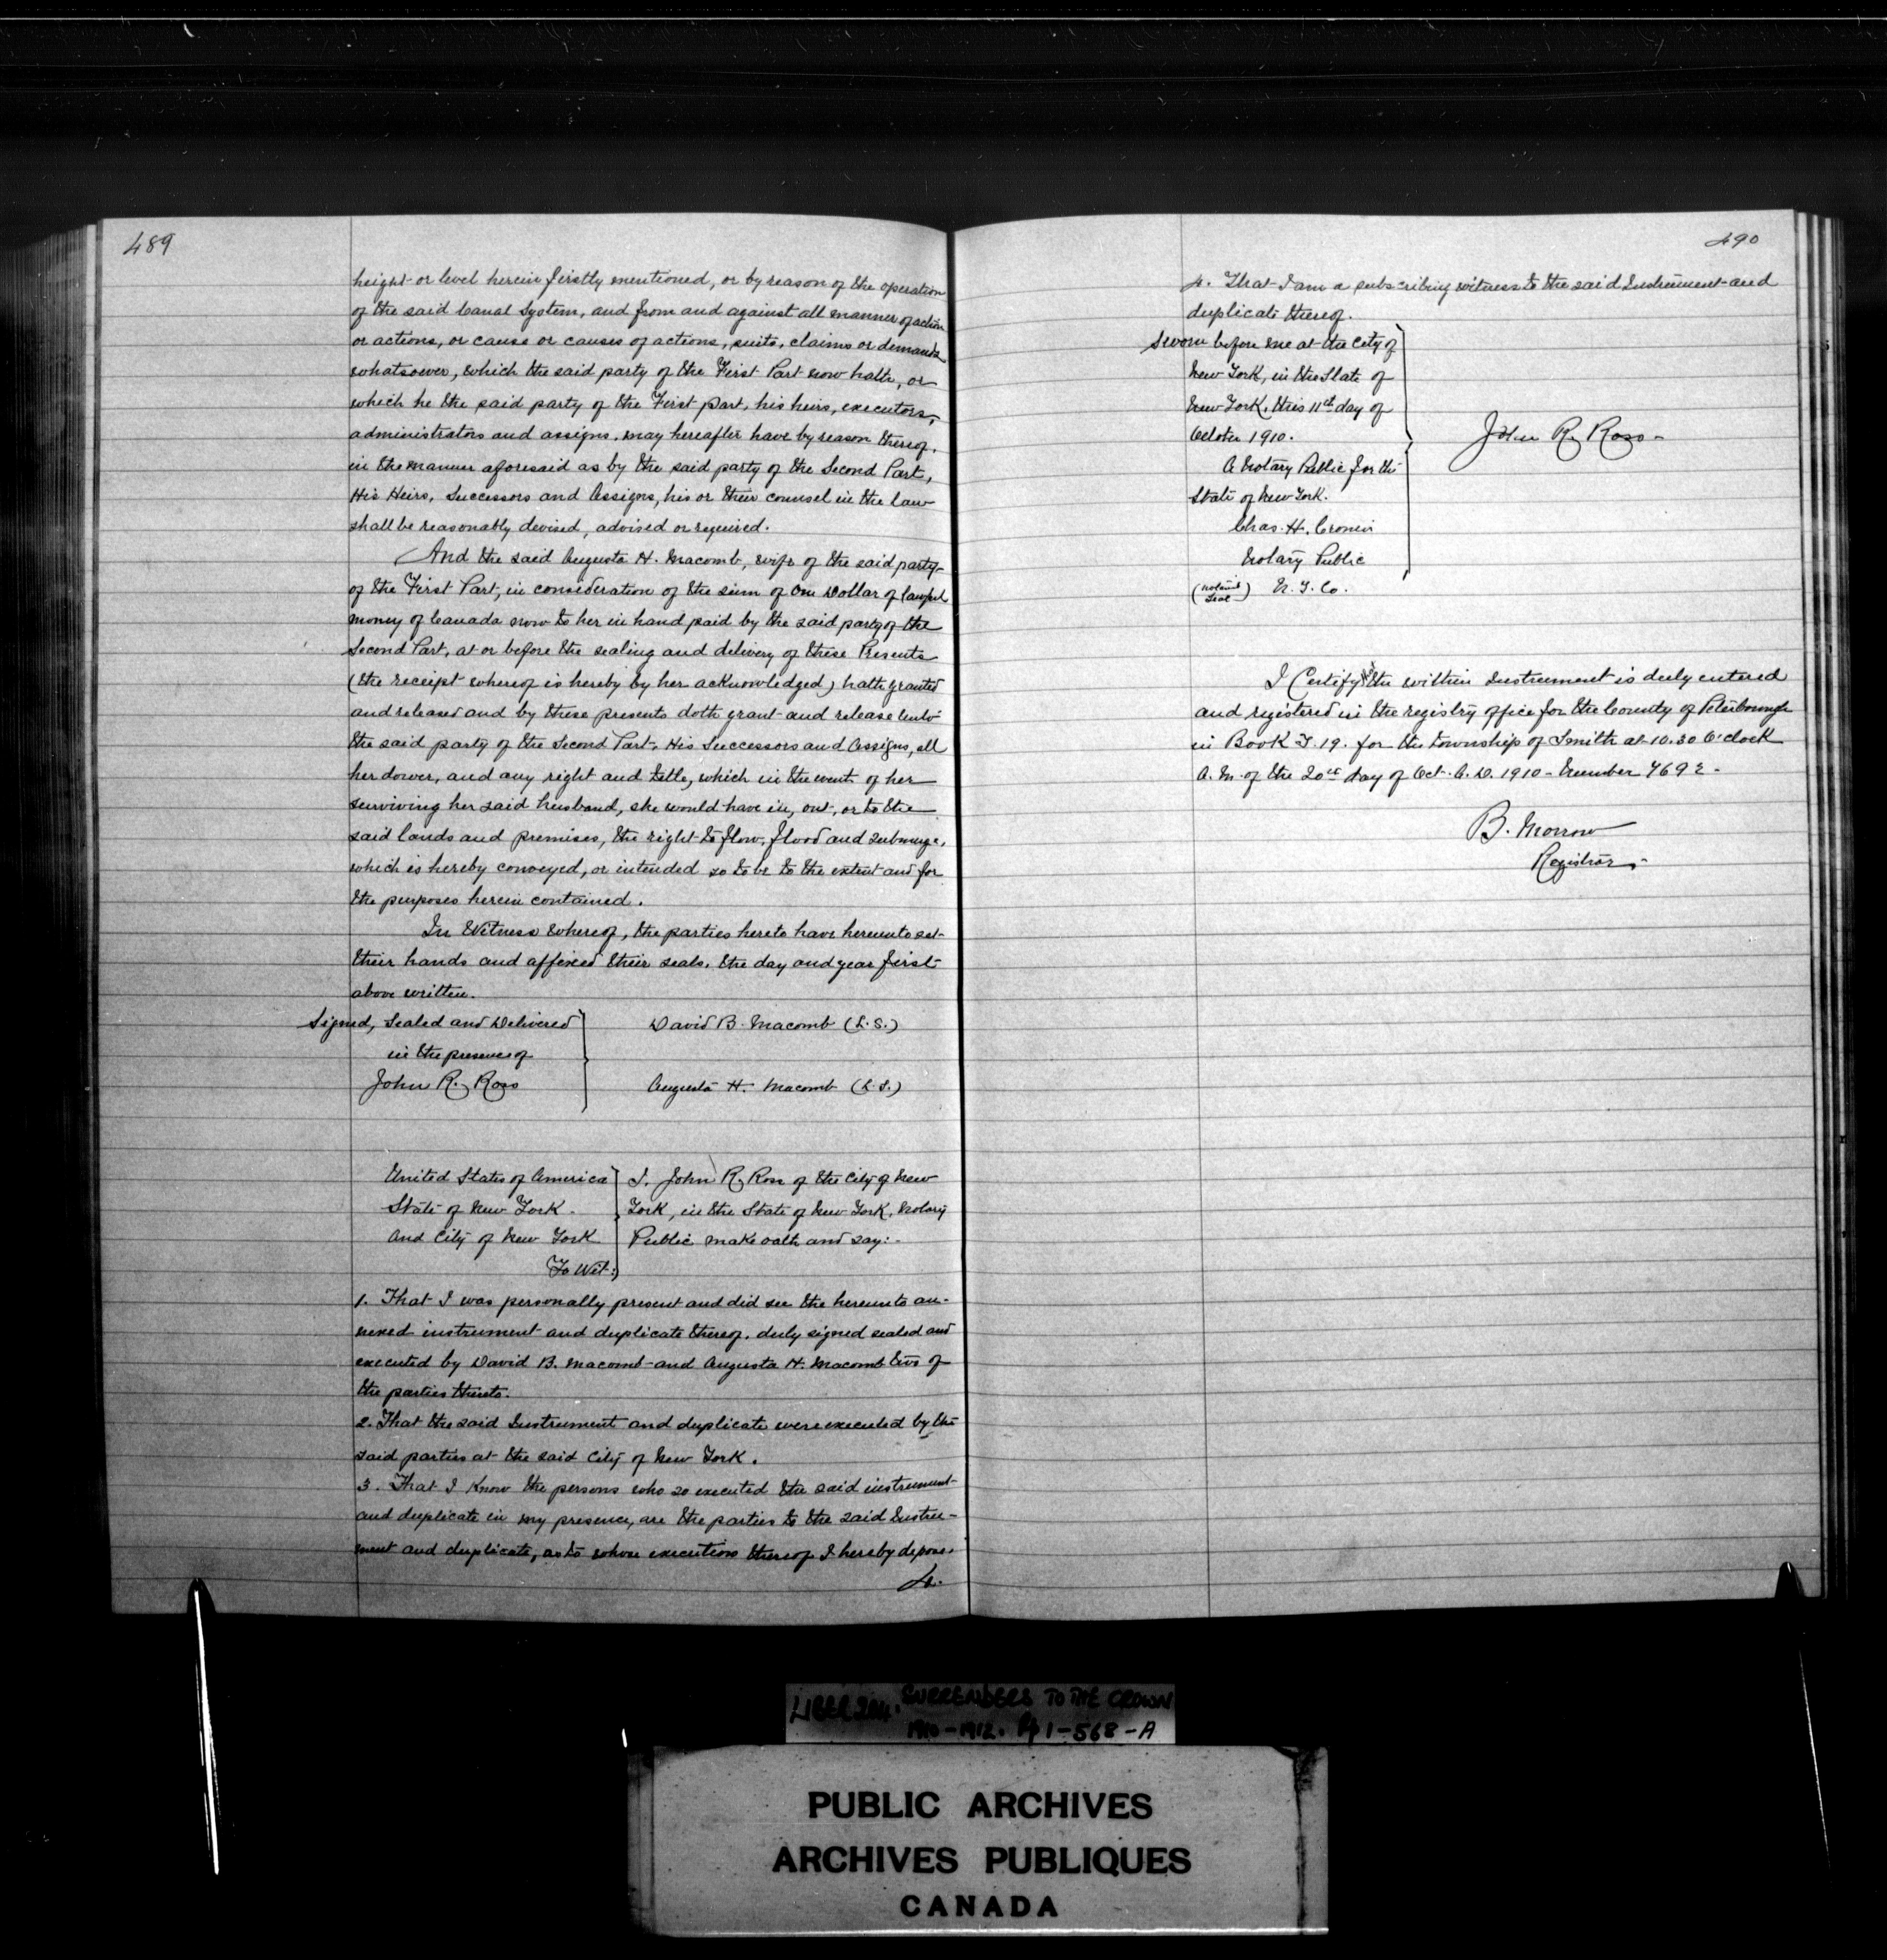 489
height or level herein firstly mentioned, or by reason of the operation
of the said Canal System, and from and against all manner of action
or actions, or cause or causes of actions, suits, claims or demands
whatsoever, which the said party of the First Part now hath, or
which he the said party of the First part, his heirs, executors,
administrators and assigns, may hereafter have by reason thereof,
in the manner aforesaid as by the said party of the Second Part,
His Heirs, Successors and Assigns, his or their counsel in the law
shall be reasonably devised, advised or required.
And the said Augusta H. Macomb, wife of the said party
of the First Part, in consideration of the sum of One Dollar of lawful
money of Canada now to her in hand paid by the said party of the
Second Part, at or before the sealing and delivery of these Presents
(the receipt whereof is hereby by her acknowledged) hath granted
and released and by these presents doth grant and release unto
the said party of the Second Part, His Successors and Assigns, all
her dower, and any right and title, which in the event of her
surviving her said husband, she would have in, out, or to the
said lands and premises, the right to flow, flood and submerge,
which is hereby conveyed, or intended so to be to the extent and for
the purposes herein contained.
In Witness Whereof, the parties hereto have hereunto set
their hands and affixed their seals, the day and year first
above written.
Signed, Sealed and Delivered
in the presence of
John R. Ross
David B. Macomb (L.S.)
Augusta H. Macomb (L.S.)
United States of America
State of New York.
And City of New York
To Wit:
I, John R. Ross of the City of New
York, in the State of New York, Notary
Public make oath and say:-
1. That I was personally present and did see the hereunto an-
nexed instrument and duplicate thereof, duly signed sealed and
executed by David B. Macomb and Augusta H. Macomb two of
the parties thereto.
2. That the said Instrument and duplicate were executed by the
said parties at the said City of New York.
3. That I know the persons who so executed the said instrument
and duplicate in my presence, are the parties to the said Instru-
ment and duplicate, as to whose execution thereof I hereby depose.
4.
490
4. That I am a subscribing witness to the said Instrument and
duplicate thereof.
Sworn before me at the City of
New York, in the State of
New York, this 11th day of
October 1910.
A Notary Public for the
State of New York.
Chas. H. Cronin
Notary Public
(Notarial Seal) N.Y. Co.
John R. Ross
I Certify the within Instrument is duly entered
and registered in the registry office for the County of Peterborough
in Book T. 19. for the Township of Smith at 10.30 O'clock
A.M. of the 20th day of Oct. A.D. 1910 - Number 7692.
B. Morrow
Registrar
LIBER 204. SURRENDERS TO THE CROWN
1910-1912. Pp 1-568-A
PUBLIC ARCHIVES
ARCHIVES PUBLIQUES
CANADA